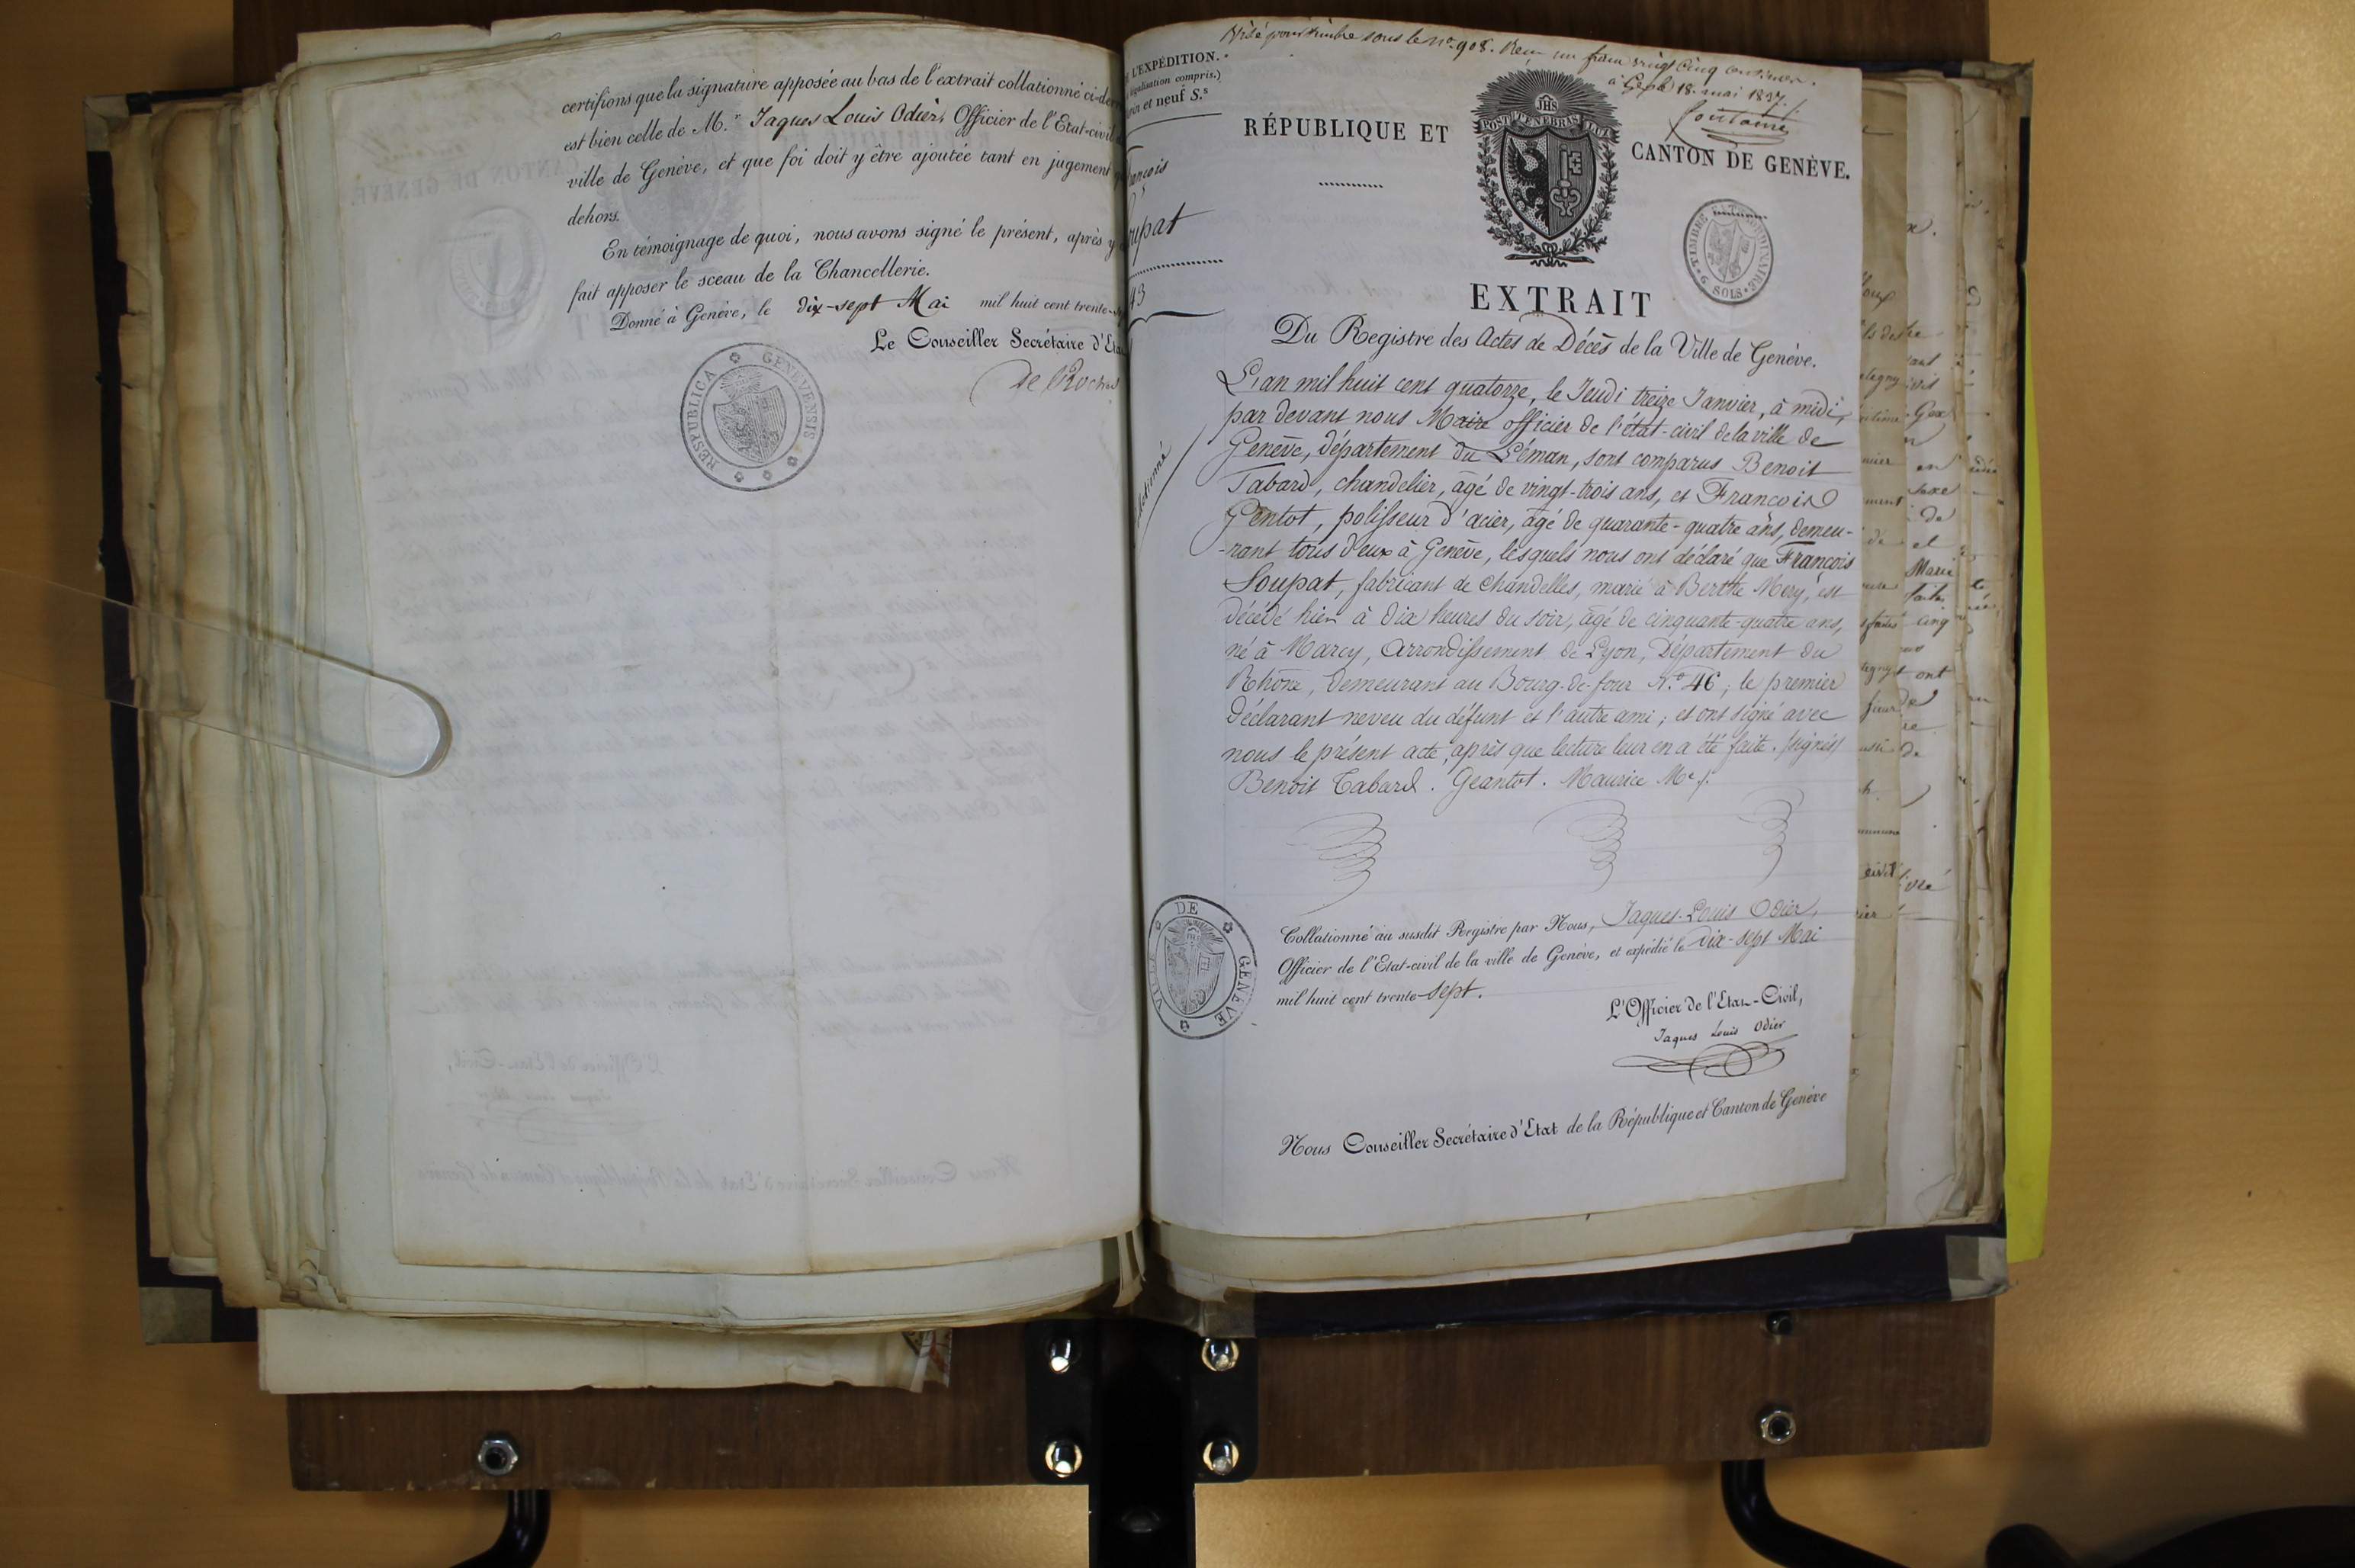 certifions que la signature apposée au bas de l'extrait collationné ci-de
est bien celle de M.r Jaques Louis Odier, Officier de l'Etat-civil
ville de Genève, et que foi doit y être ajoutée tant en jugement
dehors.
En témoignage de quoi, nous avons signé le présent, après y
fait apposer le sceau de la Chancellerie.
Donné à Genève, le dix-sept Mai mil huit cent trente-
Le Conseiller Secrétaire d'Eta
De Roches
RESPUBLICA GENEVENSIS
Visé pour timbre sous le no. 908. Reçu un franc vingt cinq centimes.
à Gex le 18. mai 1837.
L'EXPÉDITION.
galisation compris.)
et neuf S.s
ançois
upat
43
lationné
RÉPUBLIQUE ET
CANTON DE GENÈVE.
JHS
POST TENEBRAS LUX
TIMBRE EXTRAORDINAIRE
9 SOLS
EXTRAIT
Du Registre des Actes de Décès de la Ville de Genève.
L'an mil huit cent quatorze, le Jeudi treize Janvier, à midi,
par devant nous Maire officier de l'état-civil de la ville de
Genève, département du Léman, sont comparus Benoit
Tabard, chandelier, âgé de vingt-trois ans, et François
Gentot, polisseur d'acier, âgé de quarante-quatre ans, demeu-
-rant tous deux à Genève, lesquels nous ont déclaré que François
Soupat, fabricant de chandelles, marié à Berthe Mery, est
décédé hier à dix heures du soir, âgé de cinquante-quatre ans,
né à Marcy, Arrondissement de Lyon, Département du
Rhône, demeurant au Bourg-de-four N.o 46; le premier
déclarant neveu du défunt et l'autre ami; et ont signé avec
nous le présent acte, après que lecture leur en a été faite. (signés)
Benoit Tabard. Geantot. Maurice Me.
VILLE DE GENÈVE
Collationné au susdit Registre par Nous, Jaques-Louis Odier,
Officier de l'Etat-civil de la ville de Genève, et expédié le dix-sept Mai
mil huit cent trente-sept.
L'Officier de l'Etat-Civil,
Jaques Louis Odier
Nous Conseiller Secrétaire d'Etat de la République et Canton de Genève